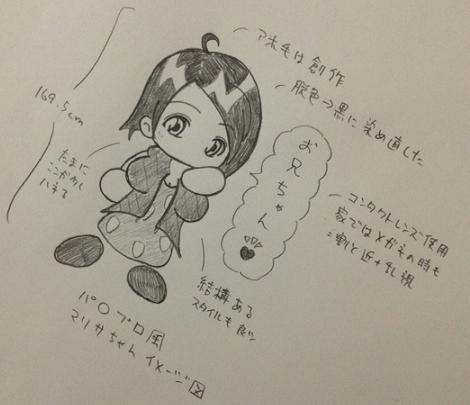 アホ毛は創作
脱色→黒に染め直した
169.5cm
たまに
ここがかし
ハネる
お兄ちゃん
コンタクトレンズ使用
家ではメガネの時も
割と近+乱視
結構ある
スタイルも良い
パ〇プロ風
マリサちゃんイメージ図